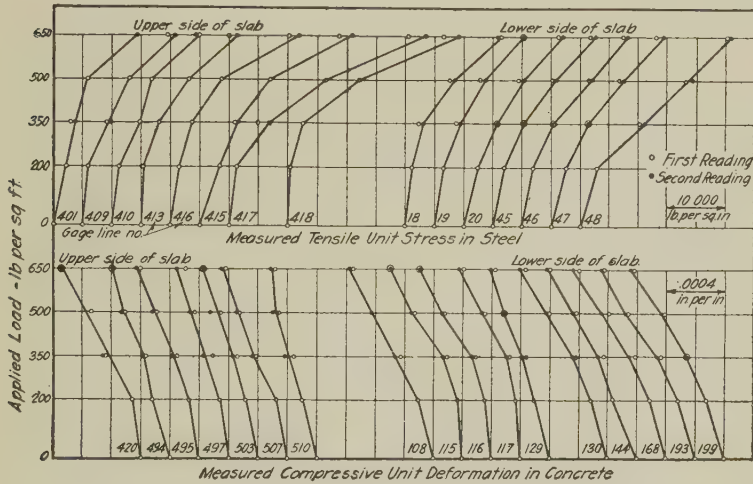 Applied Load - lb per sq ft.
650
500
350
200
0
Upper side of slab
Lower side of slab
First Reading
Second Reading
10 000
lb. per sq in
401 409 410 413 416 415 417 418 18 19 20 45 46 47 48
Gage line no.
Measured Tensile Unit Stress in Steel
Upper side of slab
Lower side of slab.
.0004
in per in
650
500
350
200
0
420 494 495 497 503 507 510 108 115 116 117 129 130 144 168 193 199
Measured Compressive Unit Deformation in Concrete